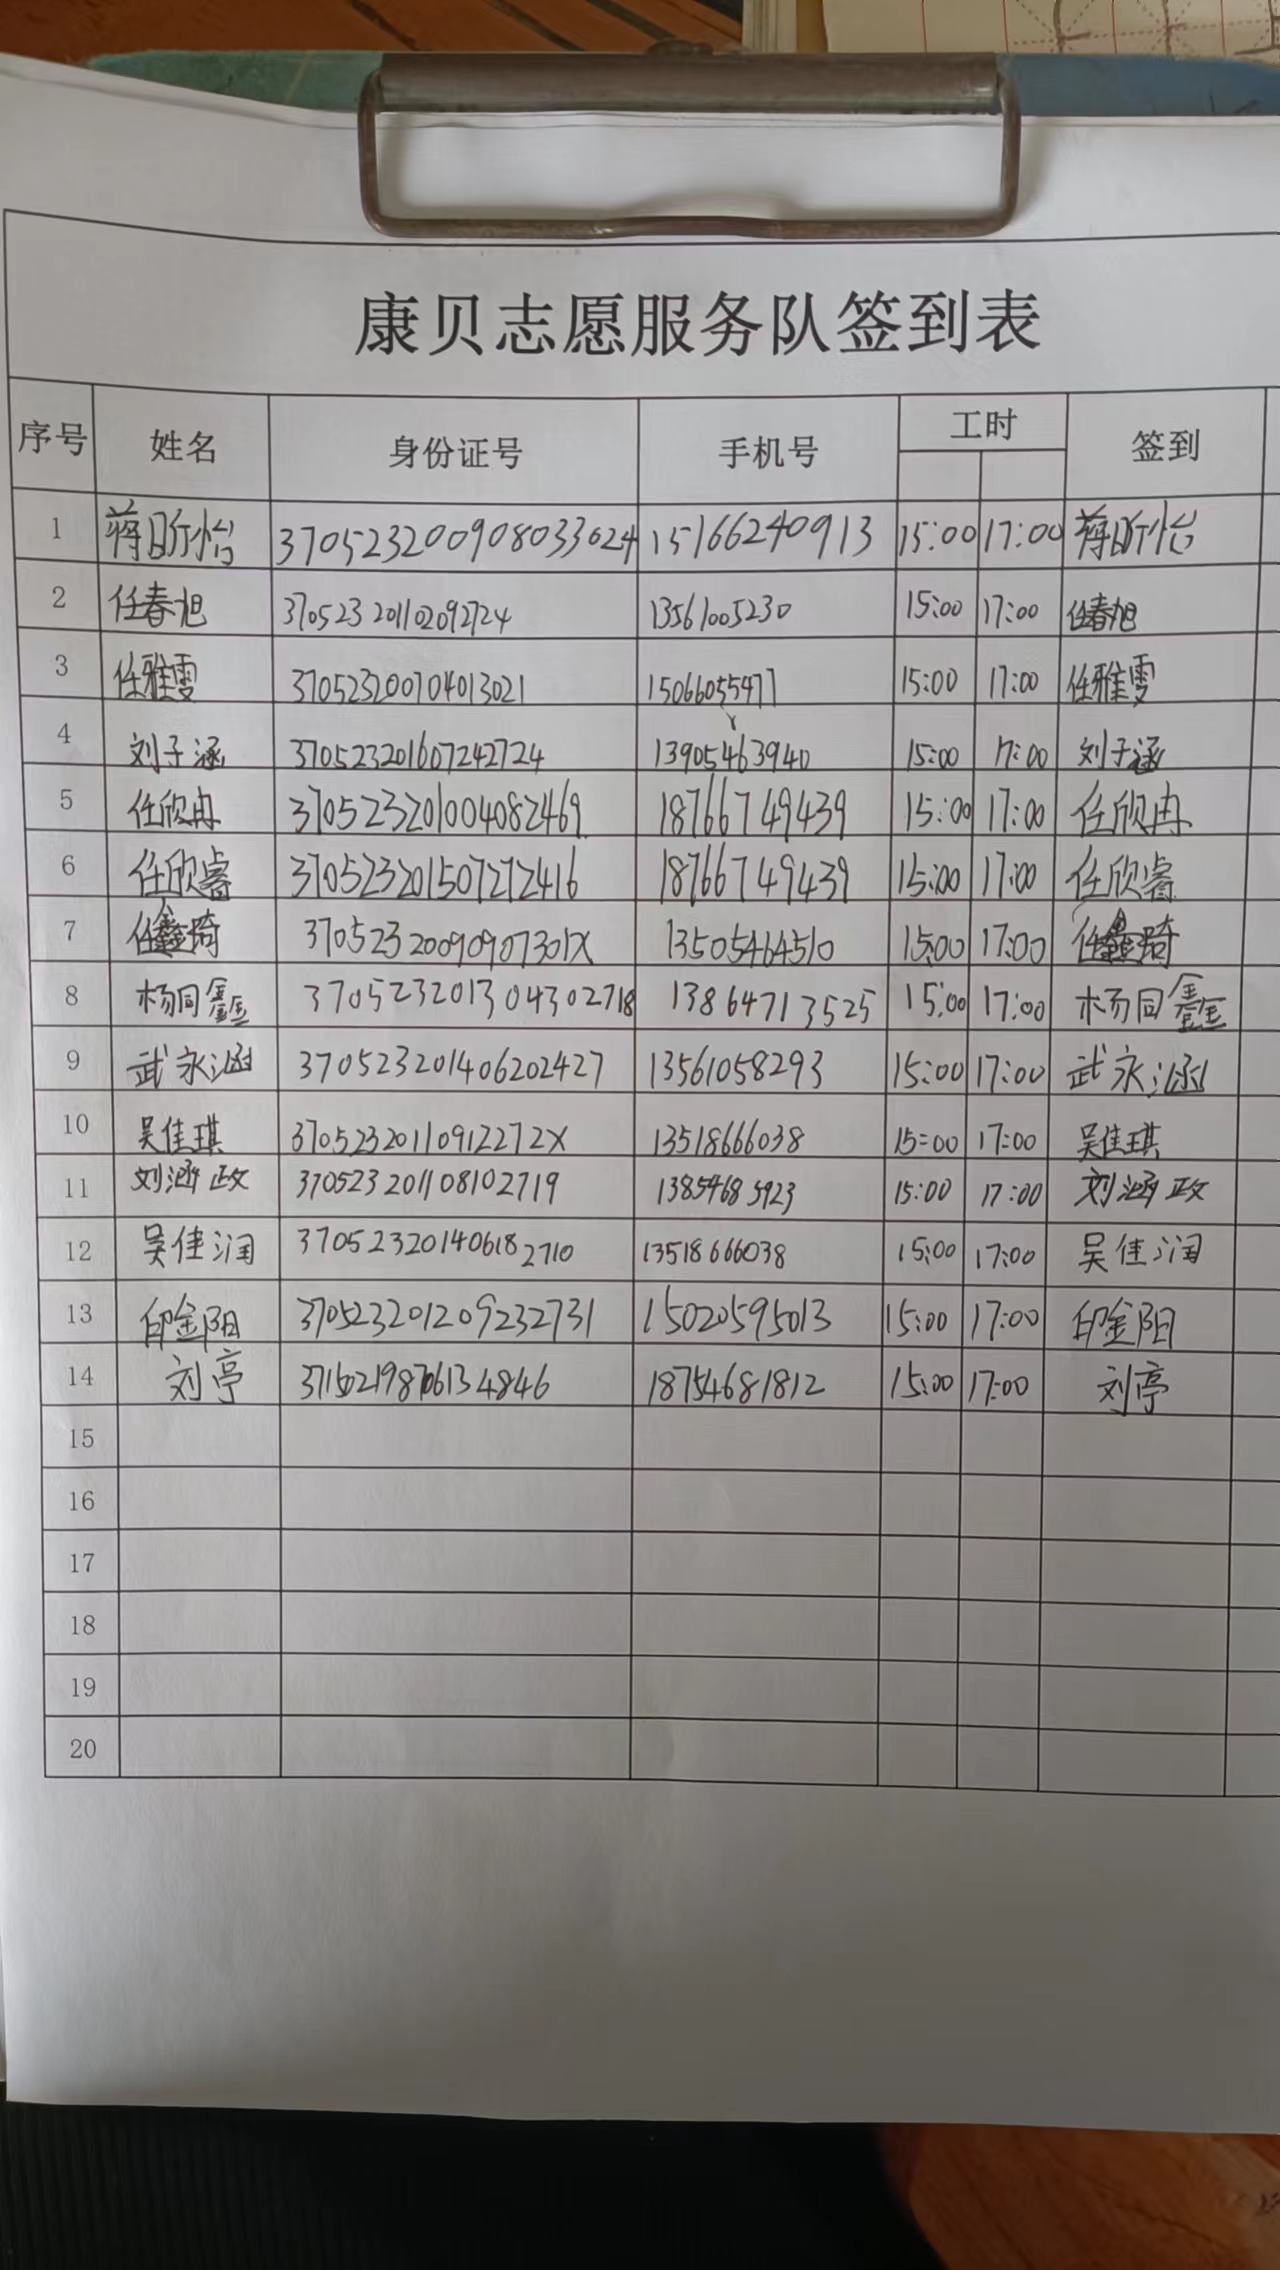 康贝志愿服务队签到表
序号 姓名 身份证号 手机号 工时 签到
1 蒋昕怡 370523200908033624 15166240913 15:00 17:00 蒋昕怡
2 任春旭 370523201102092724 13561005230 15:00 17:00 任春旭
3 任雅雯 370523200704013021 15066055477 15:00 17:00 任雅雯
4 刘子涵 370523201607242724 13905463940 15:00 17:00 刘子涵
5 任欣冉 370523201004082469 18766749439 15:00 17:00 任欣冉
6 任欣睿 370523201507272416 18766749439 15:00 17:00 任欣睿
7 任鑫琦 37052320090907301X 13505464510 15:00 17:00 任鑫琦
8 杨同鑫 370523201304302718 13864713525 15:00 17:00 杨同鑫
9 武永涵 370523201406202427 13561058293 15:00 17:00 武永涵
10 吴佳琪 37052320110912272X 13518666038 15:00 17:00 吴佳琪
11 刘涵政 370523201108102719 13854685923 15:00 17:00 刘涵政
12 吴佳润 370523201406182710 13518666038 15:00 17:00 吴佳润
13 印金阳 370523201209232731 15020595013 15:00 17:00 印金阳
14 刘亭 371502198706134846 18754681812 15:00 17:00 刘亭
15
16
17
18
19
20